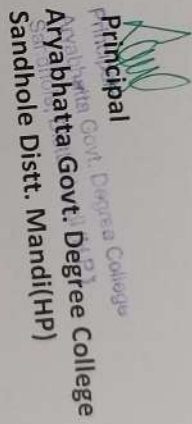 Principal
Aryabhatta Govt. Degree College
Sandhole Distt. Mandi(HP)
Principal
Aryabhatta Govt. Degree College